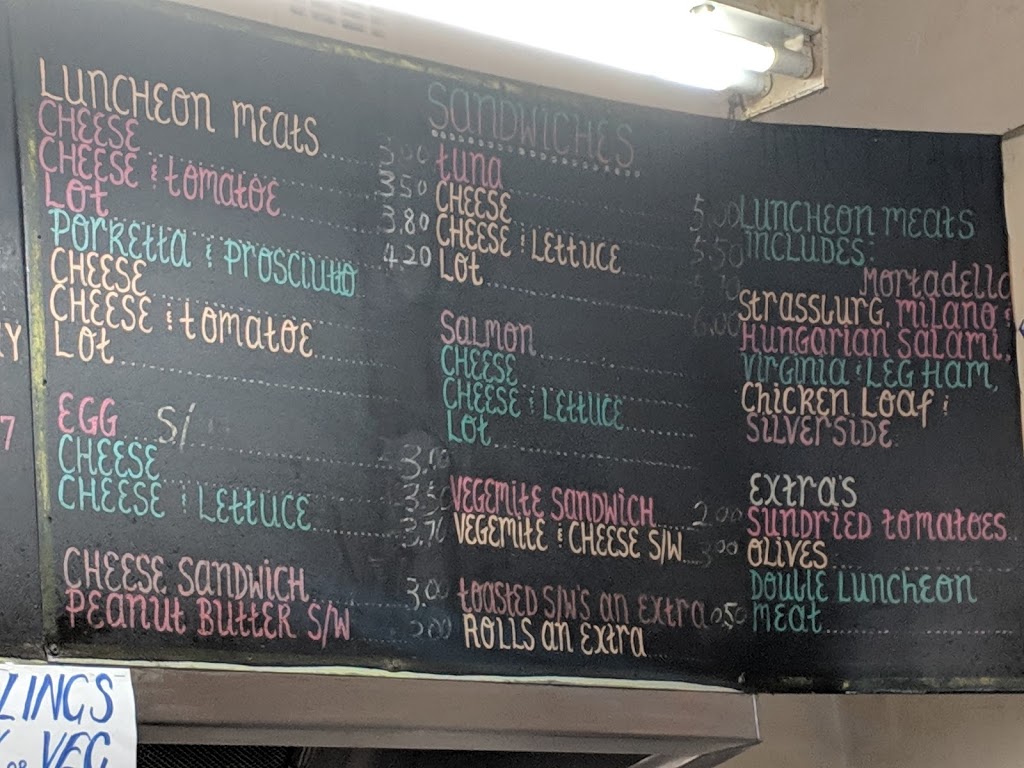 SANDWICHES
LUNCHEON MEATS 3.00
CHEESE 3.50
CHEESE & TOMATOE 3.80
LOT 4.20
PORKETTA & PROSCIUTTO
CHEESE
CHEESE & TOMATOE
LOT
EGG S/
CHEESE
CHEESE & LETTUCE
CHEESE SANDWICH 3.00
PEANUT BUTTER S/W
TUNA 5.00
CHEESE 5.50
CHEESE & LETTUCE
LOT 6.00
SALMON
CHEESE
CHEESE & LETTUCE
LOT
VEGEMITE SANDWICH 2.00
VEGEMITE & CHEESE S/W 3.00
TOASTED S/W'S AN EXTRA 0.50
ROLLS AN EXTRA
LUNCHEON MEATS
INCLUDES:
MORTADELLA
STRASSLURG, MILANO &
HUNGARIAN SALAMI,
VIRGINIA & LEG HAM,
CHICKEN LOAF &
SILVERSIDE
EXTRA'S
SUNDRIED TOMATOES
OLIVES
DOUBLE LUNCHEON
MEAT
Y
7
LINGS
OR VEG